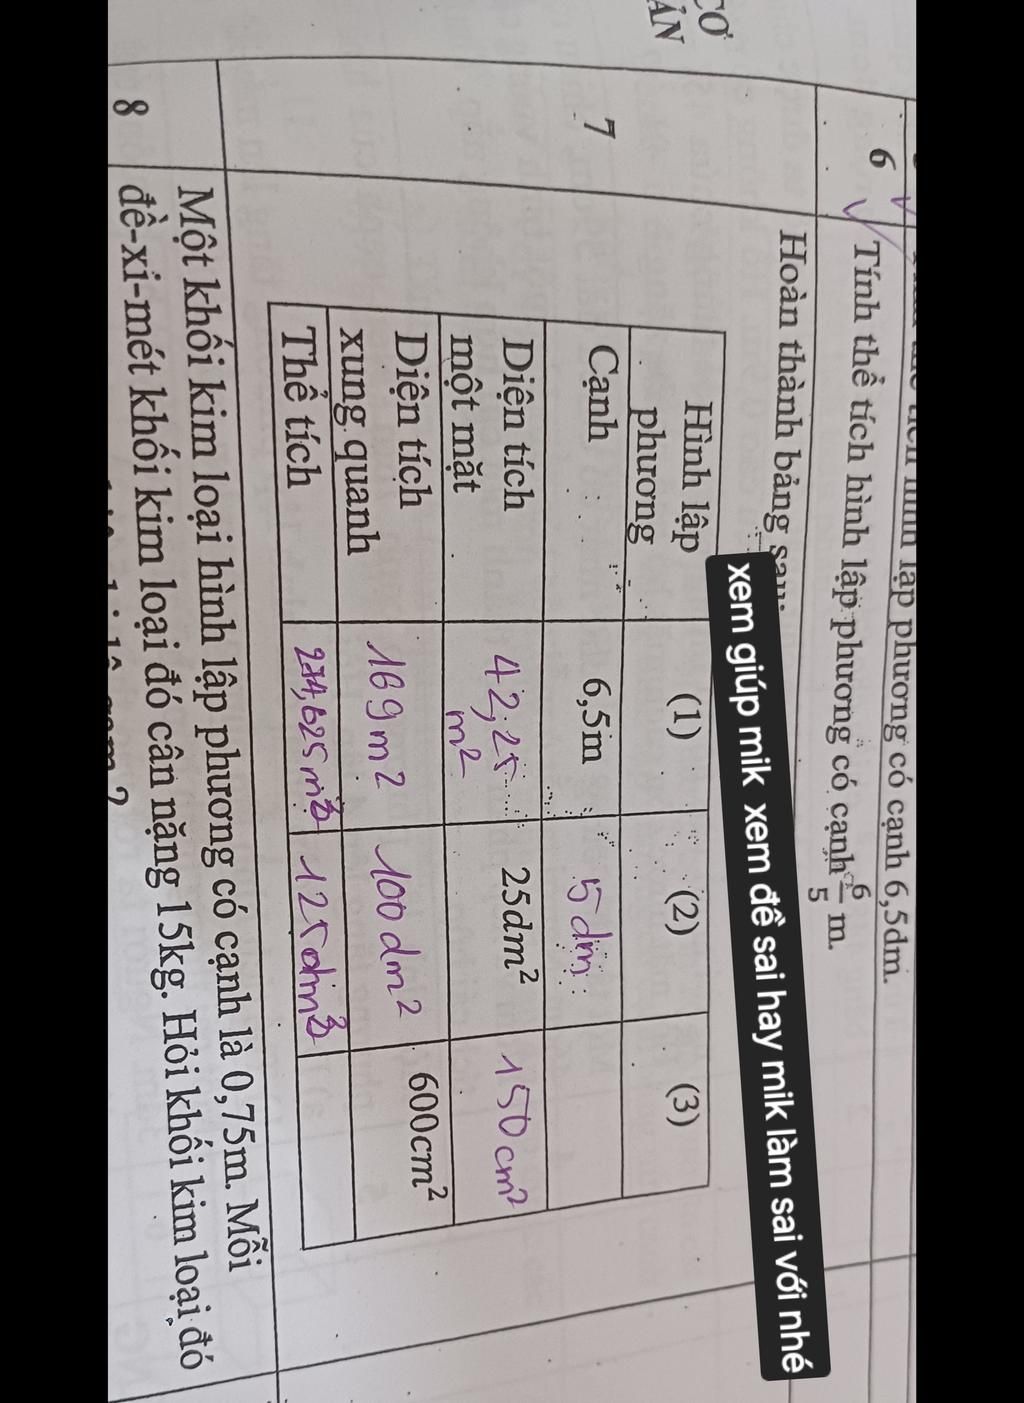 CƠ
ẢN
lập phương có cạnh 6,5dm.
6 Tính thể tích hình lập phương có cạnh 6/5 m.
7 Hoàn thành bảng sau:
xem giúp mik xem đề sai hay mik làm sai với nhé
Hình lập phương (1) (2) (3)
Cạnh 6,5m 5dm
Diện tích một mặt 42,25 m² 25dm² 150cm²
Diện tích xung quanh 169m² 100dm² 600cm²
Thể tích 274,625m³ 125dm³
Một khối kim loại hình lập phương có cạnh là 0,75m. Mỗi
8 đề-xi-mét khối kim loại đó cân nặng 15kg. Hỏi khối kim loại đó